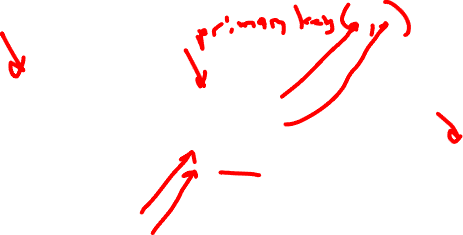 primary key( , )